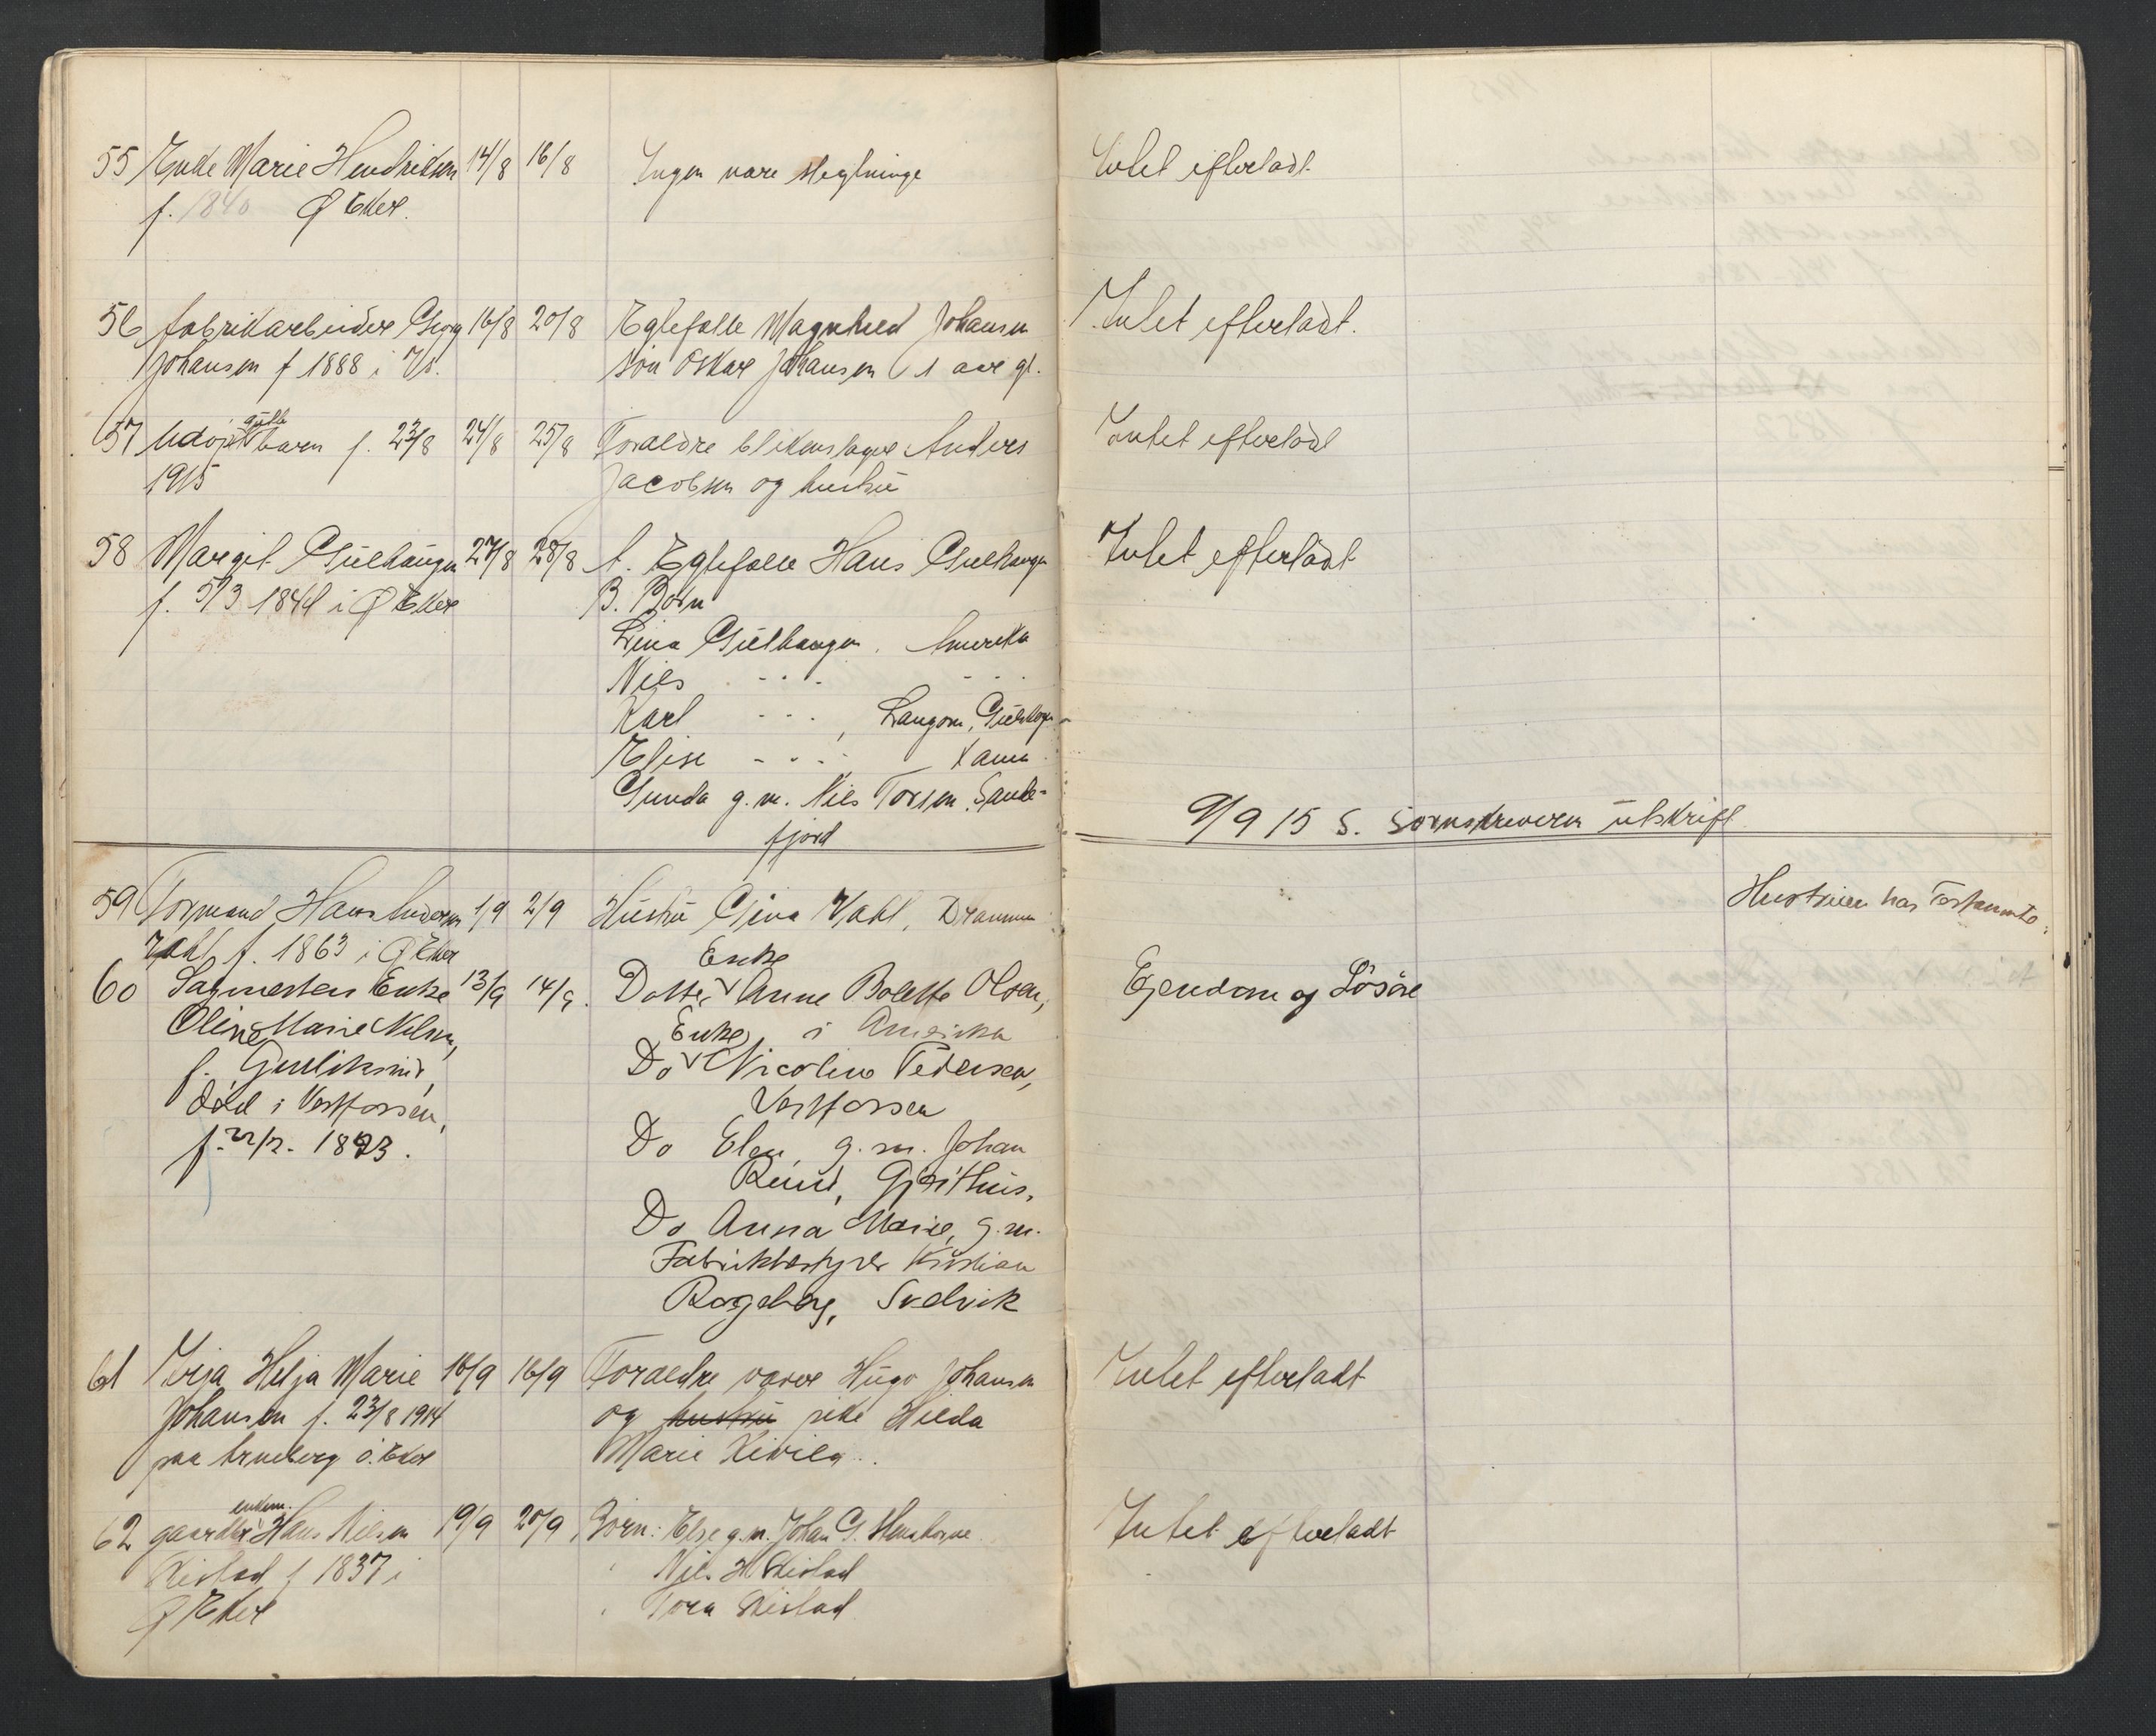 55 Enke Marie Hendriksen 14/8 16/8 Ingen nære slegtninge Intet efterladt
f. 1840 Ø Eker.
56 fabrikarbeider Georg 16/8 20/8 Egtefælle Magnhild Johansen Intet efterladt.
Johansen f 1888 i
søn Oskar Johansen 1 aar gl.
57 Udøpt gutte barn f. 23/8 24/8 25/8 Forældre blikenslager Anders Intet efterladt
1915 Jacobsen og hustru
58 Margit Gulhaugen 27/8 28/8 A. Egtefælle Hans Gulhaugen Intet efterladt
f. 5/3 1844 i Ø Eker B. Børn
Lina Gulhaugen, Amerika
Nils - - - - - -
Karl - - - , Langum, Gulskogen
Elise - - -
Gunda g. m. Nils Torsen, Sande-
fjord
9/9 15 S. Sorenskriveren utskrift
59 Formand Hans Andersen 1/9 2/9 Hustru Gina Wahl, Drammen Hustruen har Testamente.
Wahl f. 1863 i Ø Eker Enke
60 Sagmesters Enke 13/9 14/9. Datter Anne Bolette Olsen, Ejendom og Løsøre
Oline Marie Nilsen, Enke i Amerika
f. Gulliksrud, Do Nicoline Pedersen,
død i Vestfossen, Vestfossen
f. 1823. Do Elen, g. m. Johan
Ruud, Gjeithus,
Do Anna Marie, g. m.
Fabrikbestyrer Kristian
Rogeberg, Svelvik
61 Irja Helja Marie 16/9 16/9 Forældre væver Hugo Johansen Intet efterladt
Johansen f. 23/8 1914 og hustru pike Hilda
paa Arneberg ø. Eker Marie Kivila.
62 gaardbr. enkem. Hans Nilsen 19/9 20/9 Børn: Else g. m. Johan G. Intet efterladt
Skistad f 1837 i Nils H. Skistad
Ø Eker Tora Skistad